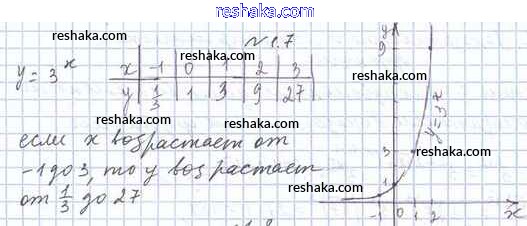 reshaka.com
№1.7
y = 3ˣ
x | -1 | 0 | 1 | 2 | 3
y | 1/3 | 1 | 3 | 9 | 27
если x возрастает от
-1 до 3, то y возрастает
от 1/3 до 27
y
9
3
1
-1 0 1 2 x
y=3ˣ
reshaka.com
reshaka.com
reshaka.com
reshaka.com
reshaka.com
reshaka.com
reshaka.com
reshaka.com